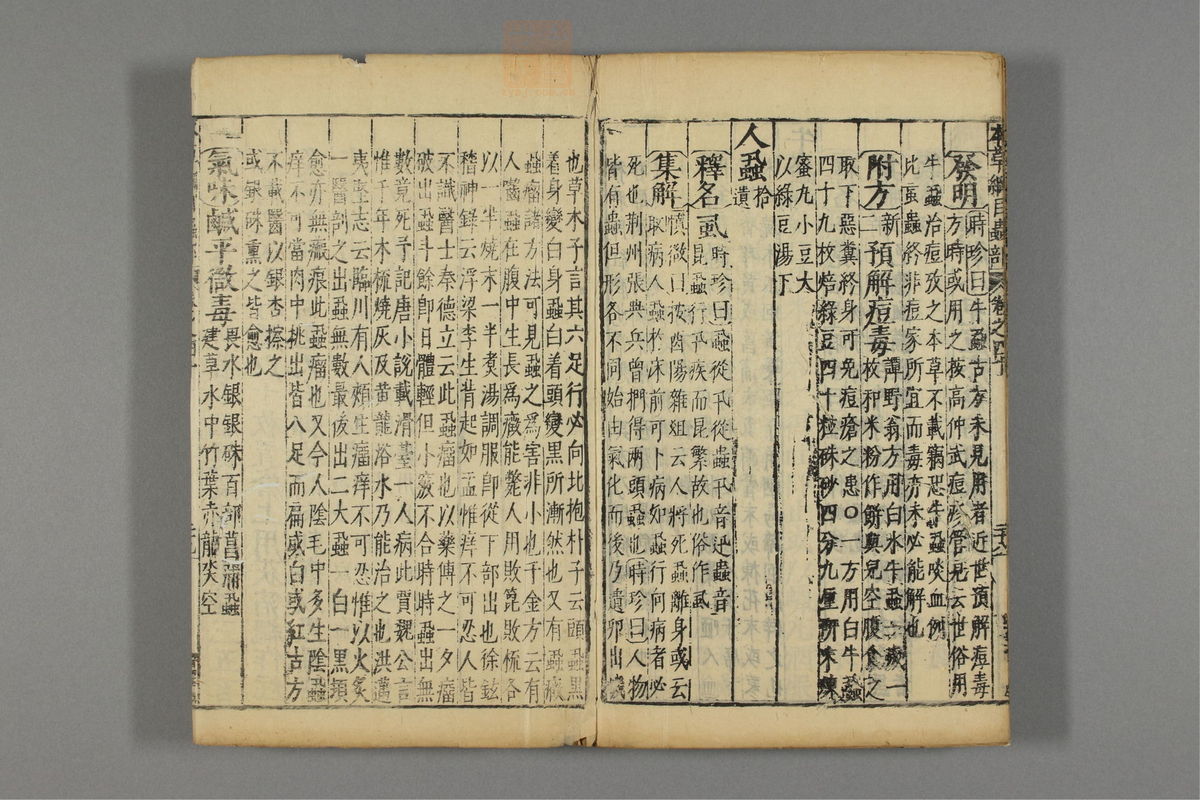 本草綱目蟲部 卷之四十
發明時珍曰牛蝨古方未見用者近世預解痘毒
方時或用之按高仲武痘疹管見云世俗用
牛蝨治痘攷之本草不載竊恐牛蝨啖血例
比䖟蟲終非痘家所宜而毒亦未必能解也
附方新二預解痘毒譚野翁方用白水牛蝨一歲一
枚和米粉作餅與兒空腹食之
取下惡糞終身可免痘瘡之患○一方用白牛蝨
四十九枚焙綠豆四十粒硃砂四分九厘研末煉
蜜丸小豆大
以綠豆湯下
人蝨拾遺
釋名虱時珍曰蝨從卂從䖵卂音迅䖵音
昆蝨行卂疾而昆繁故也俗作虱
集解慎微曰按酉陽雜俎云人將死蝨離身或云
取病人蝨於床前可卜病如蝨行向病者必
死也荆州張典兵曾捫得兩頭蝨也時珍曰人物
皆有蝨但形各不同始由氣化而後乃遺卵出蟣
也草木子言其六足行必向北抱朴子云頭蝨黑
着身變白身蝨白着頭變黑所漸然也又有蝨癥
蝨瘤諸方法可見蝨之爲害非小也千金方云有
人囓蝨在腹中生長爲癥能斃人用敗篦敗梳各
以一半燒末一半煮湯調服卽從下部出也徐鉉
稽神錄云浮梁李生背起如盂惟痒不可忍人皆
不識醫士秦德立云此蝨瘤也以藥傅之一夕瘤
破出蝨斗餘卽日體輕但小竅不合時蝨出無
數竟死予記唐小說載滑臺一人病此賈魏公言
惟千年木梳燒灰及黄龍浴水乃能治之也洪邁
夷堅志云臨川有人頰生瘤痒不可忍惟以火炙
一醫剖之出蝨無數最後出二大蝨一白一黑頓
愈亦無瘢痕此蝨瘤也又今人陰毛中多生陰蝨
痒不可當肉中挑出皆八足而扁或白或紅古方
不載醫以銀杏擦之
或銀硃熏之皆愈也
氣味鹹平微毒畏水銀銀硃百部菖蒲蝨
建草水中竹葉赤龍水空